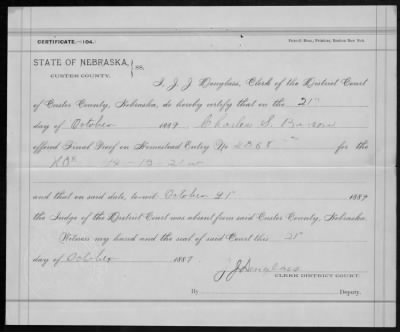 CERTIFICATE.—104.
STATE OF NEBRASKA, } ss.
CUSTER COUNTY.
I, J. J. Douglass, Clerk of the District Court
of Custer County, Nebraska, do hereby certify that on the 21st
day of October 1887 Charles S.
offered Final Proof on Homestead Entry No 2068 for the
and that on said date, to-wit October 21st 1887
the Judge of the District Court was absent from said Custer County, Nebraska.
Witness my hand and the seal of said Court this 21st
day of October 1887.
J. J. Douglass
CLERK DISTRICT COURT.
By Deputy.